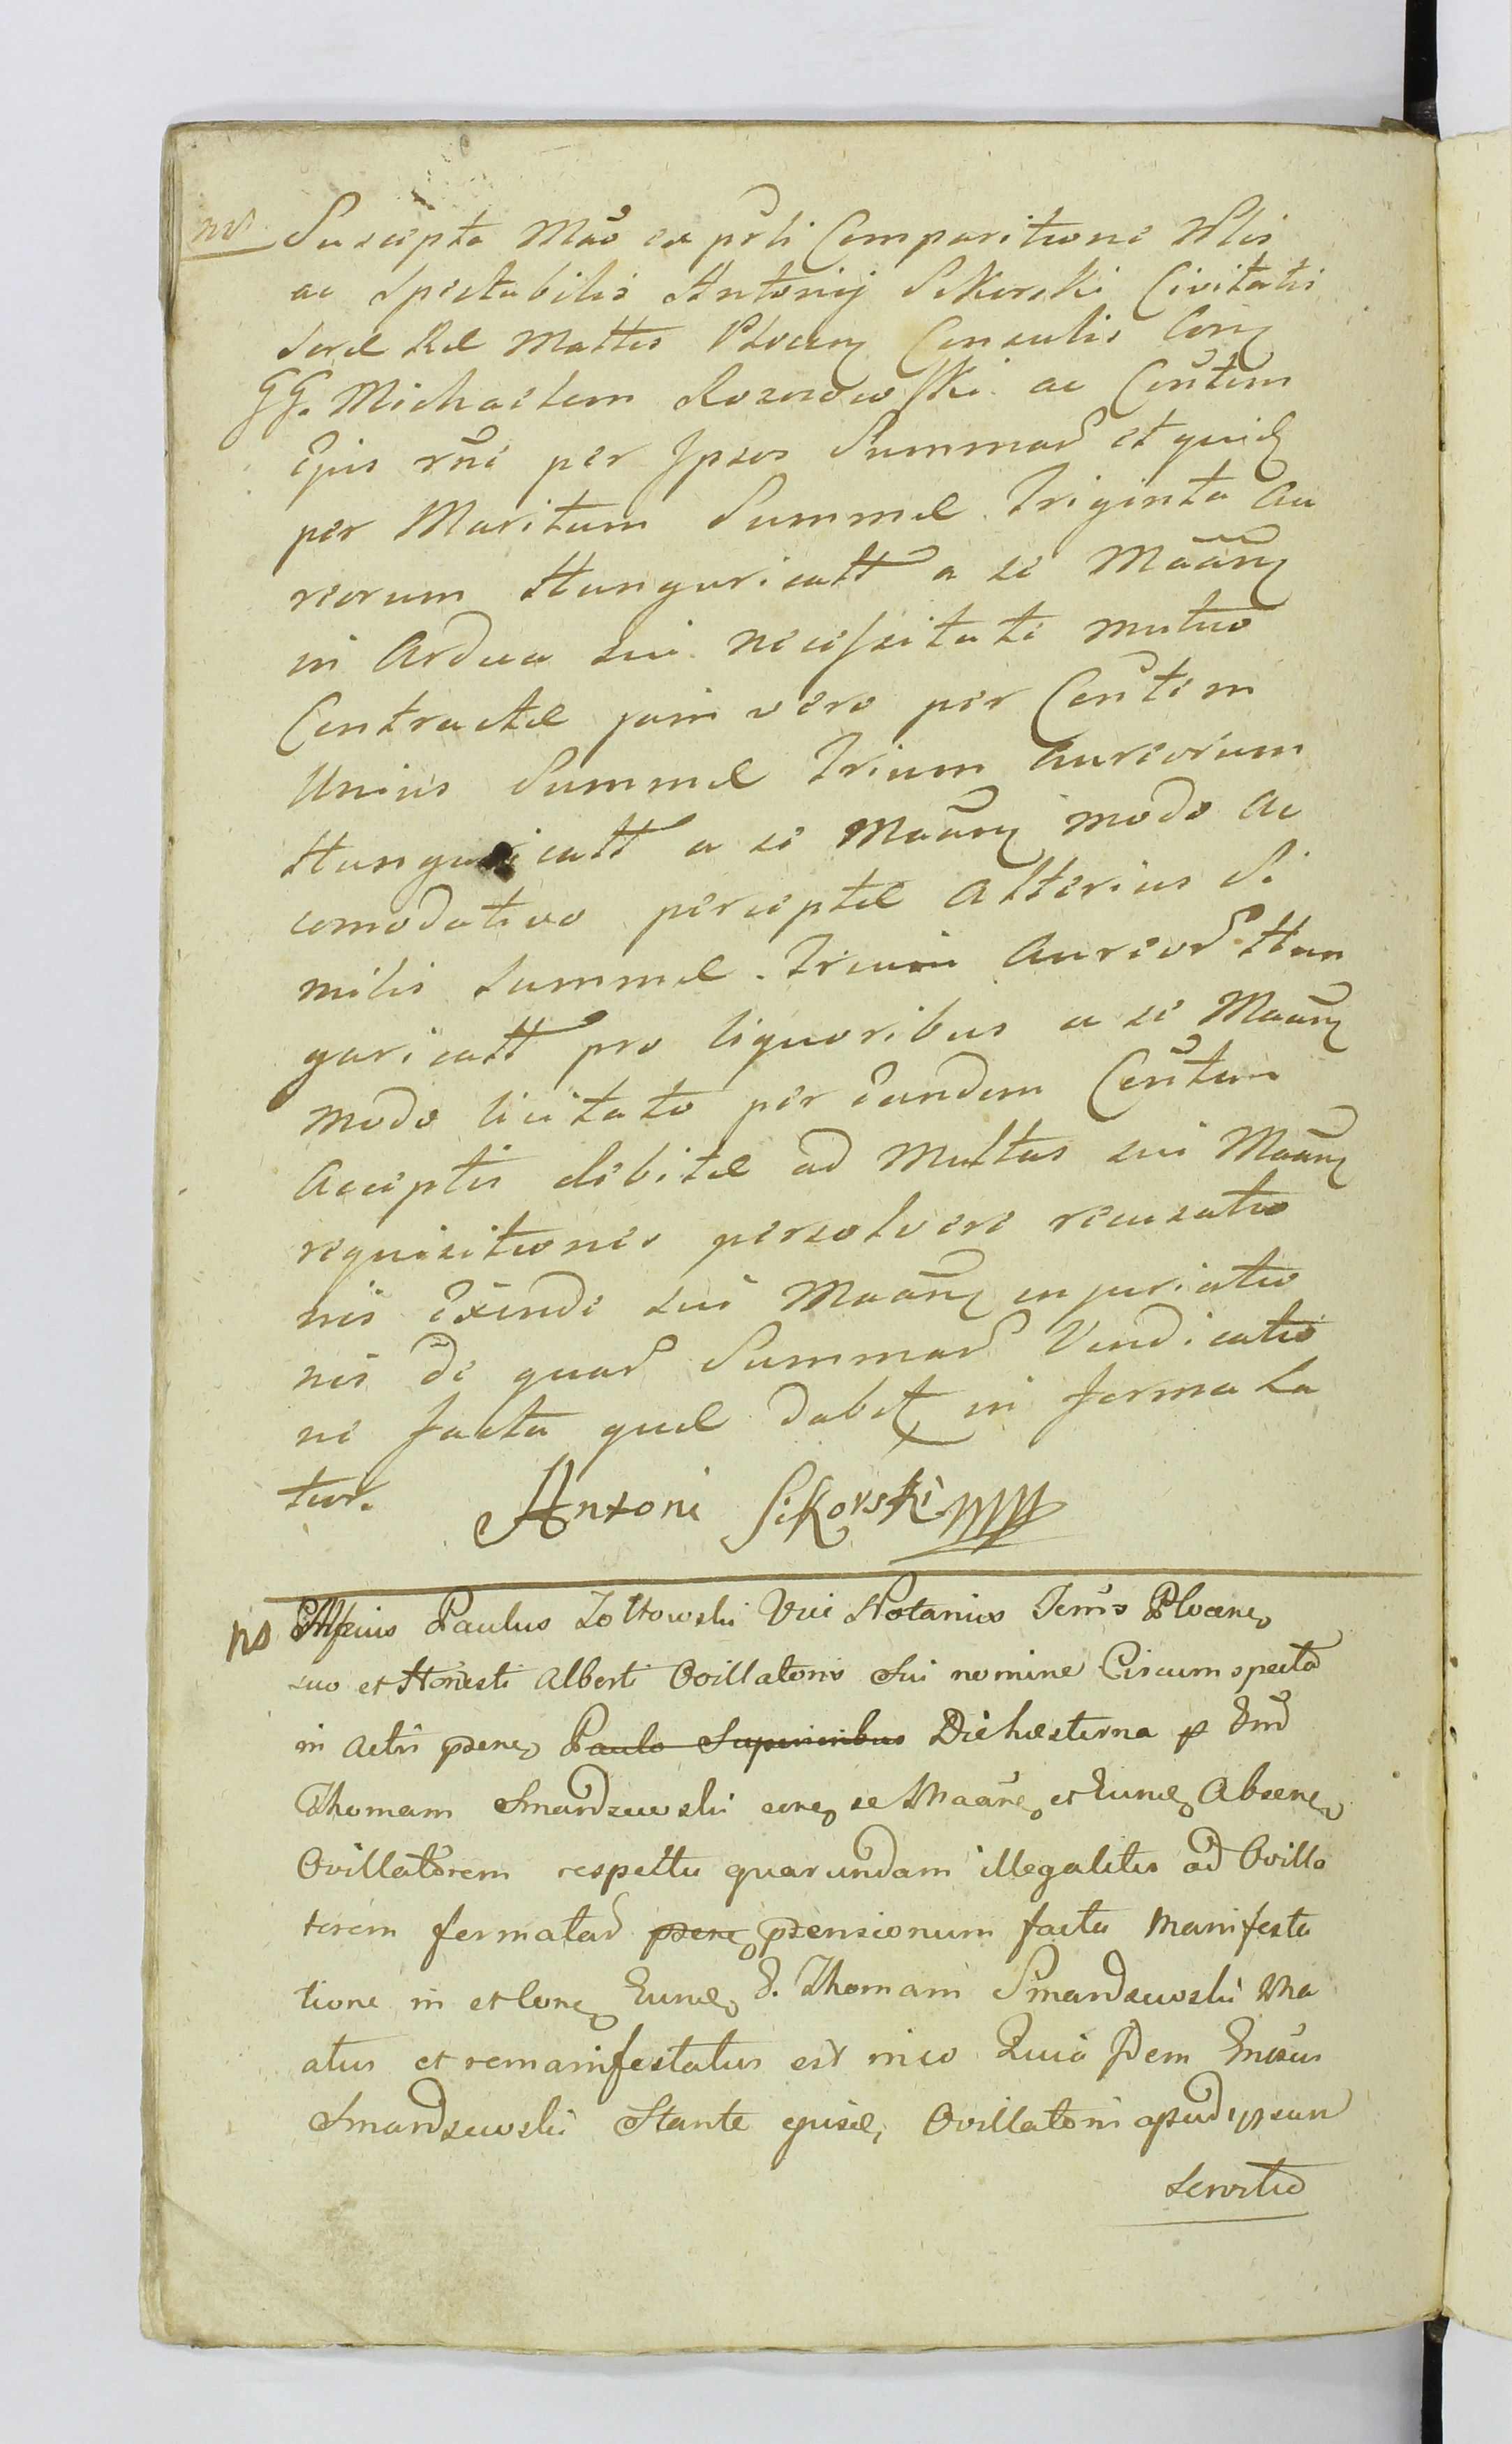 ns Suscepta Mãо ex prſti Comparitione Nlis
ac Spectabilis Antonij Sikorski Civitatis
Sacræ Ræ Mattis Plocen Consulis Con
GG. Michaelem Rozenowſki ac Conſtem
Ejus rñe per Ipsos Summar et quid
per Maritum Summæ Triginta Au
reorum Hungaricall a se Maãn
in Ardua sui necessitate mutuo
Contractæ jam vero per Conſtem
Unius Summæ Trium aureorum
Hungaricall a se Maan modo ac
comodativo perceptæ Alterius Si
milis Summæ Trium Aureor Hun
garicall pro liquoribus a se Maan
modo licitato per Eandem Conſtem
Acceptis debitæ ad Multas sui Maan
requisitiones persolvere recusatio
nis Exinde sui Maan injuriatio
nis de quar Summar Vindicatio
ne facta quæ dabit in forma La
tior.
Antoni Sikorski mpp
ns Paulus Zottowski Vice Notarius Plocen
suo et Honesti Alberti Ovillatoris Sui nomine Circumspecta
in Actis psen Paulo Superioribus Die hesterna p Gnd
Thomam Smardzewski con se Maan et Eund Absen
Ovillatorem respectu quarundam illegaliter ad Ovilla
torem formatar psen psensionum facta Manifesta
tione in et Con Eund D. Thomam Smardzewski Ma
atus et remanifestatus est in eo Quia Idem Gnosus
Smardzewski Stante ejusd Ovillatoris apud ipsum
Servitio